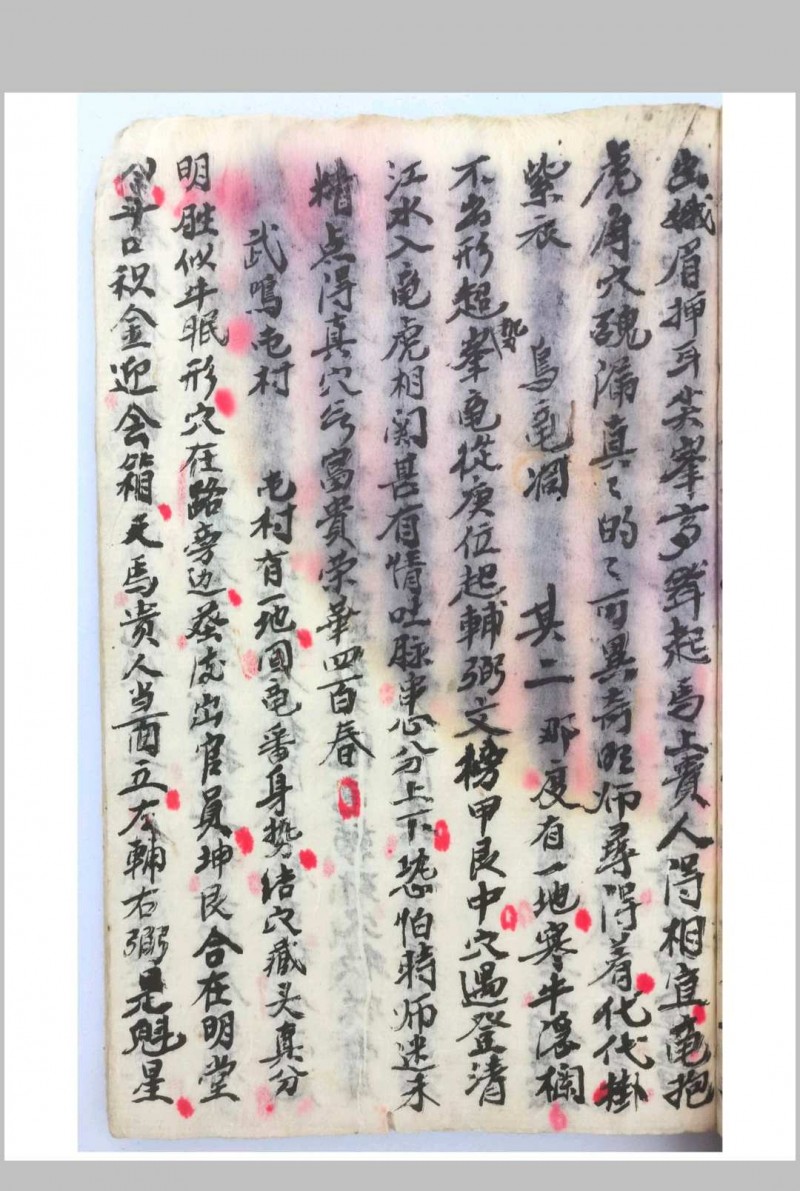 出娥眉押耳尖峯高聳起馬上賓人得相宜竜抱
虎身穴醜漏真〻的〻可異奇明师尋得着代代掛
紫衣 烏竜洞 其二 那度有一地寒牛濃欄
不出形超峯势竜從庚位起輔弼文榜甲艮中穴過登清
江水入竜虎相関甚有情吐脉串心分上下恐怕時师迷不
精点得真穴富貴荣華四百春
武鳴屯村 屯村有一地回竜番身势结穴藏头真分
明胜似牛眠形穴在路旁边葬后出官員坤艮合在明堂
斗口积金迎会箱天馬贵人当面立左輔右弼是魁星